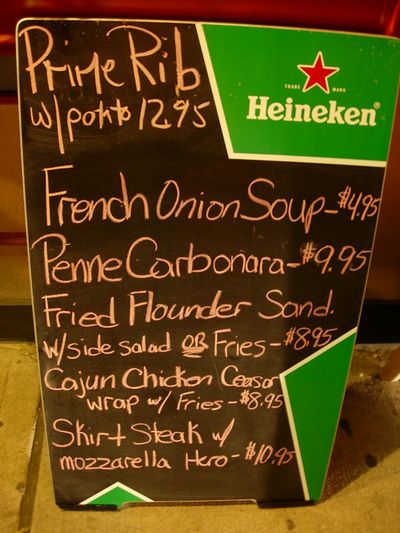 Prime Rib
w/ potato 12.95
TRADE MARK
Heineken®
French Onion Soup - $4.95
Penne Carbonara - $9.95
Fried Flounder Sand.
w/side salad OR Fries - $8.95
Cajun Chicken Ceasar
wrap w/ Fries - $8.95
Skirt Steak w/
mozzarella Hero - $10.95